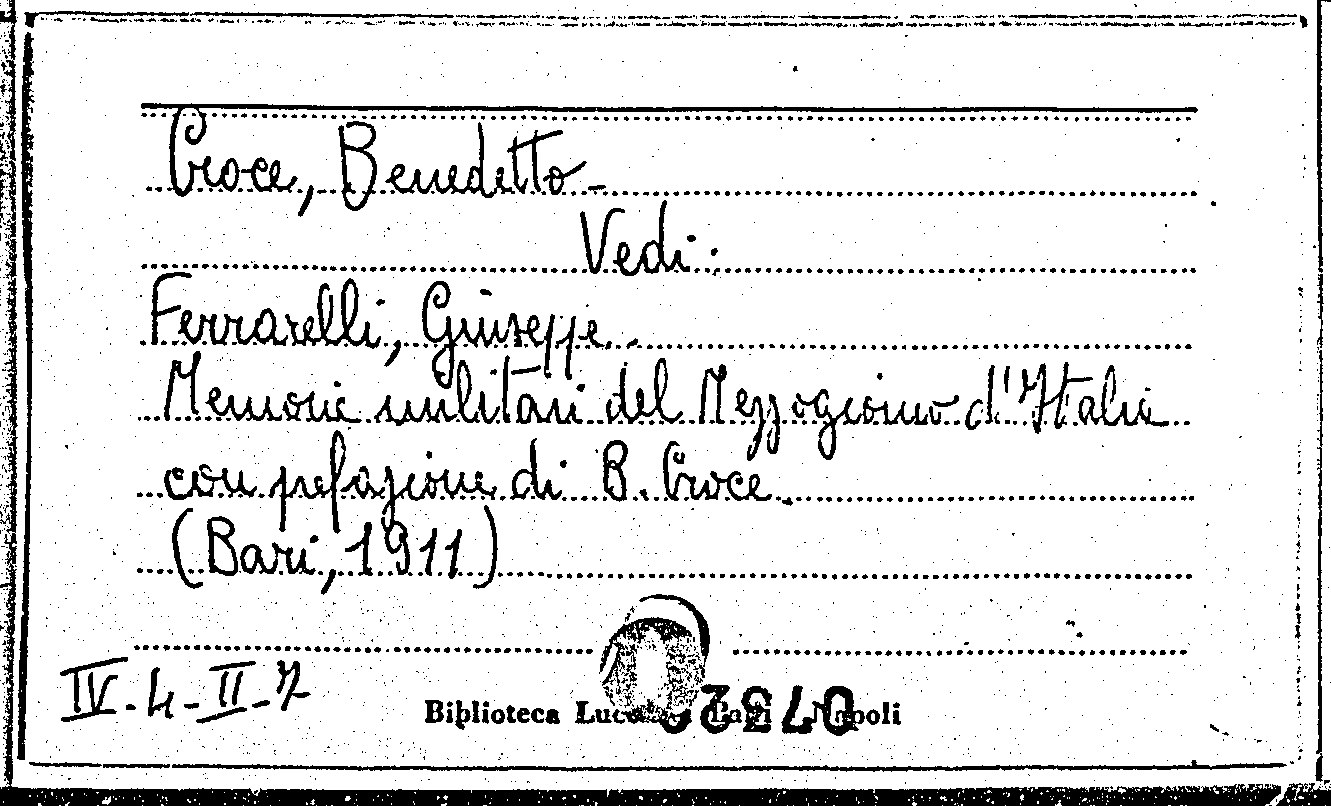 Croce, Benedetto -
Vedi:
Ferrarelli, Giuseppe.
Memorie militari del Mezzogiorno d'Italia
con prefazione di B. Croce.
(Bari, 1911)
IV-4-II-7
Biblioteca Napoli